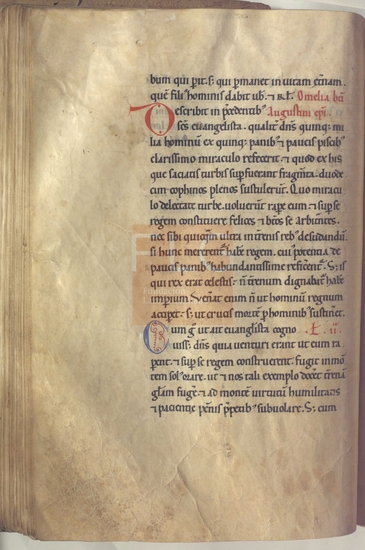 bum qui perit. s; qui permanet in uitam eternam.
quem fili' hominis dabit uob. ⁊ rl. Omelia bti
Describit in precedentib; Augustini epi.
scs euangelista. qualit dns quinq; mi
lia hominum ex quinq; panib; ⁊ paucis piscib;
clarissimo miraculo refecerit. ⁊ quod ex his
que saciatis turbis supfuerant fragmta. duode
cim cophinos plenos sustulerunt. Quo miracu
lo delectate turbe. uoluerunt rape eum. ⁊ sup se
regem constituere. felices ⁊ btos se arbitrantes.
nec sibi quicqm ultra in terrenis reb; desiderandum.
si hunc mererent habere regem. cui presentia de
paucis panib; habundantissime reficerent. S; is
qui rex erat celestis. non terrenum dignabat habere
imperium. Venerat enim non ut hominum regnum
acciperet. s; ut crucis mortem p hominib; sustineret.
Cum g ut ait euanglista cogno L. ii.
uisset dns quia uenturi erant ut eum ra
perent. ⁊ sup se regem construerent. fugit in mon
tem sol' orare. ut ⁊ nos tali exemplo doceret terrenam
glam fugere. ⁊ ad montem uirtutum humilitatis
⁊ patientie pennis pretensis subuolare. S; cum